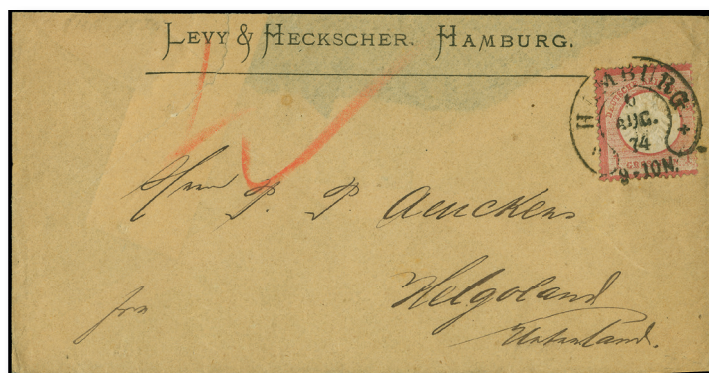 LEVY & HECKSCHER. HAMBURG.
HAMBURG
6
AUG.
74
9-10N.
Herrn P. P. Aeuckens
Helgoland
Unterland.
fro